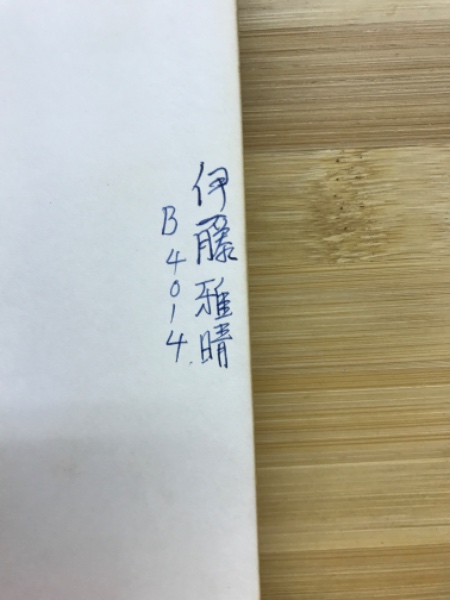 伊藤雅晴
B4014